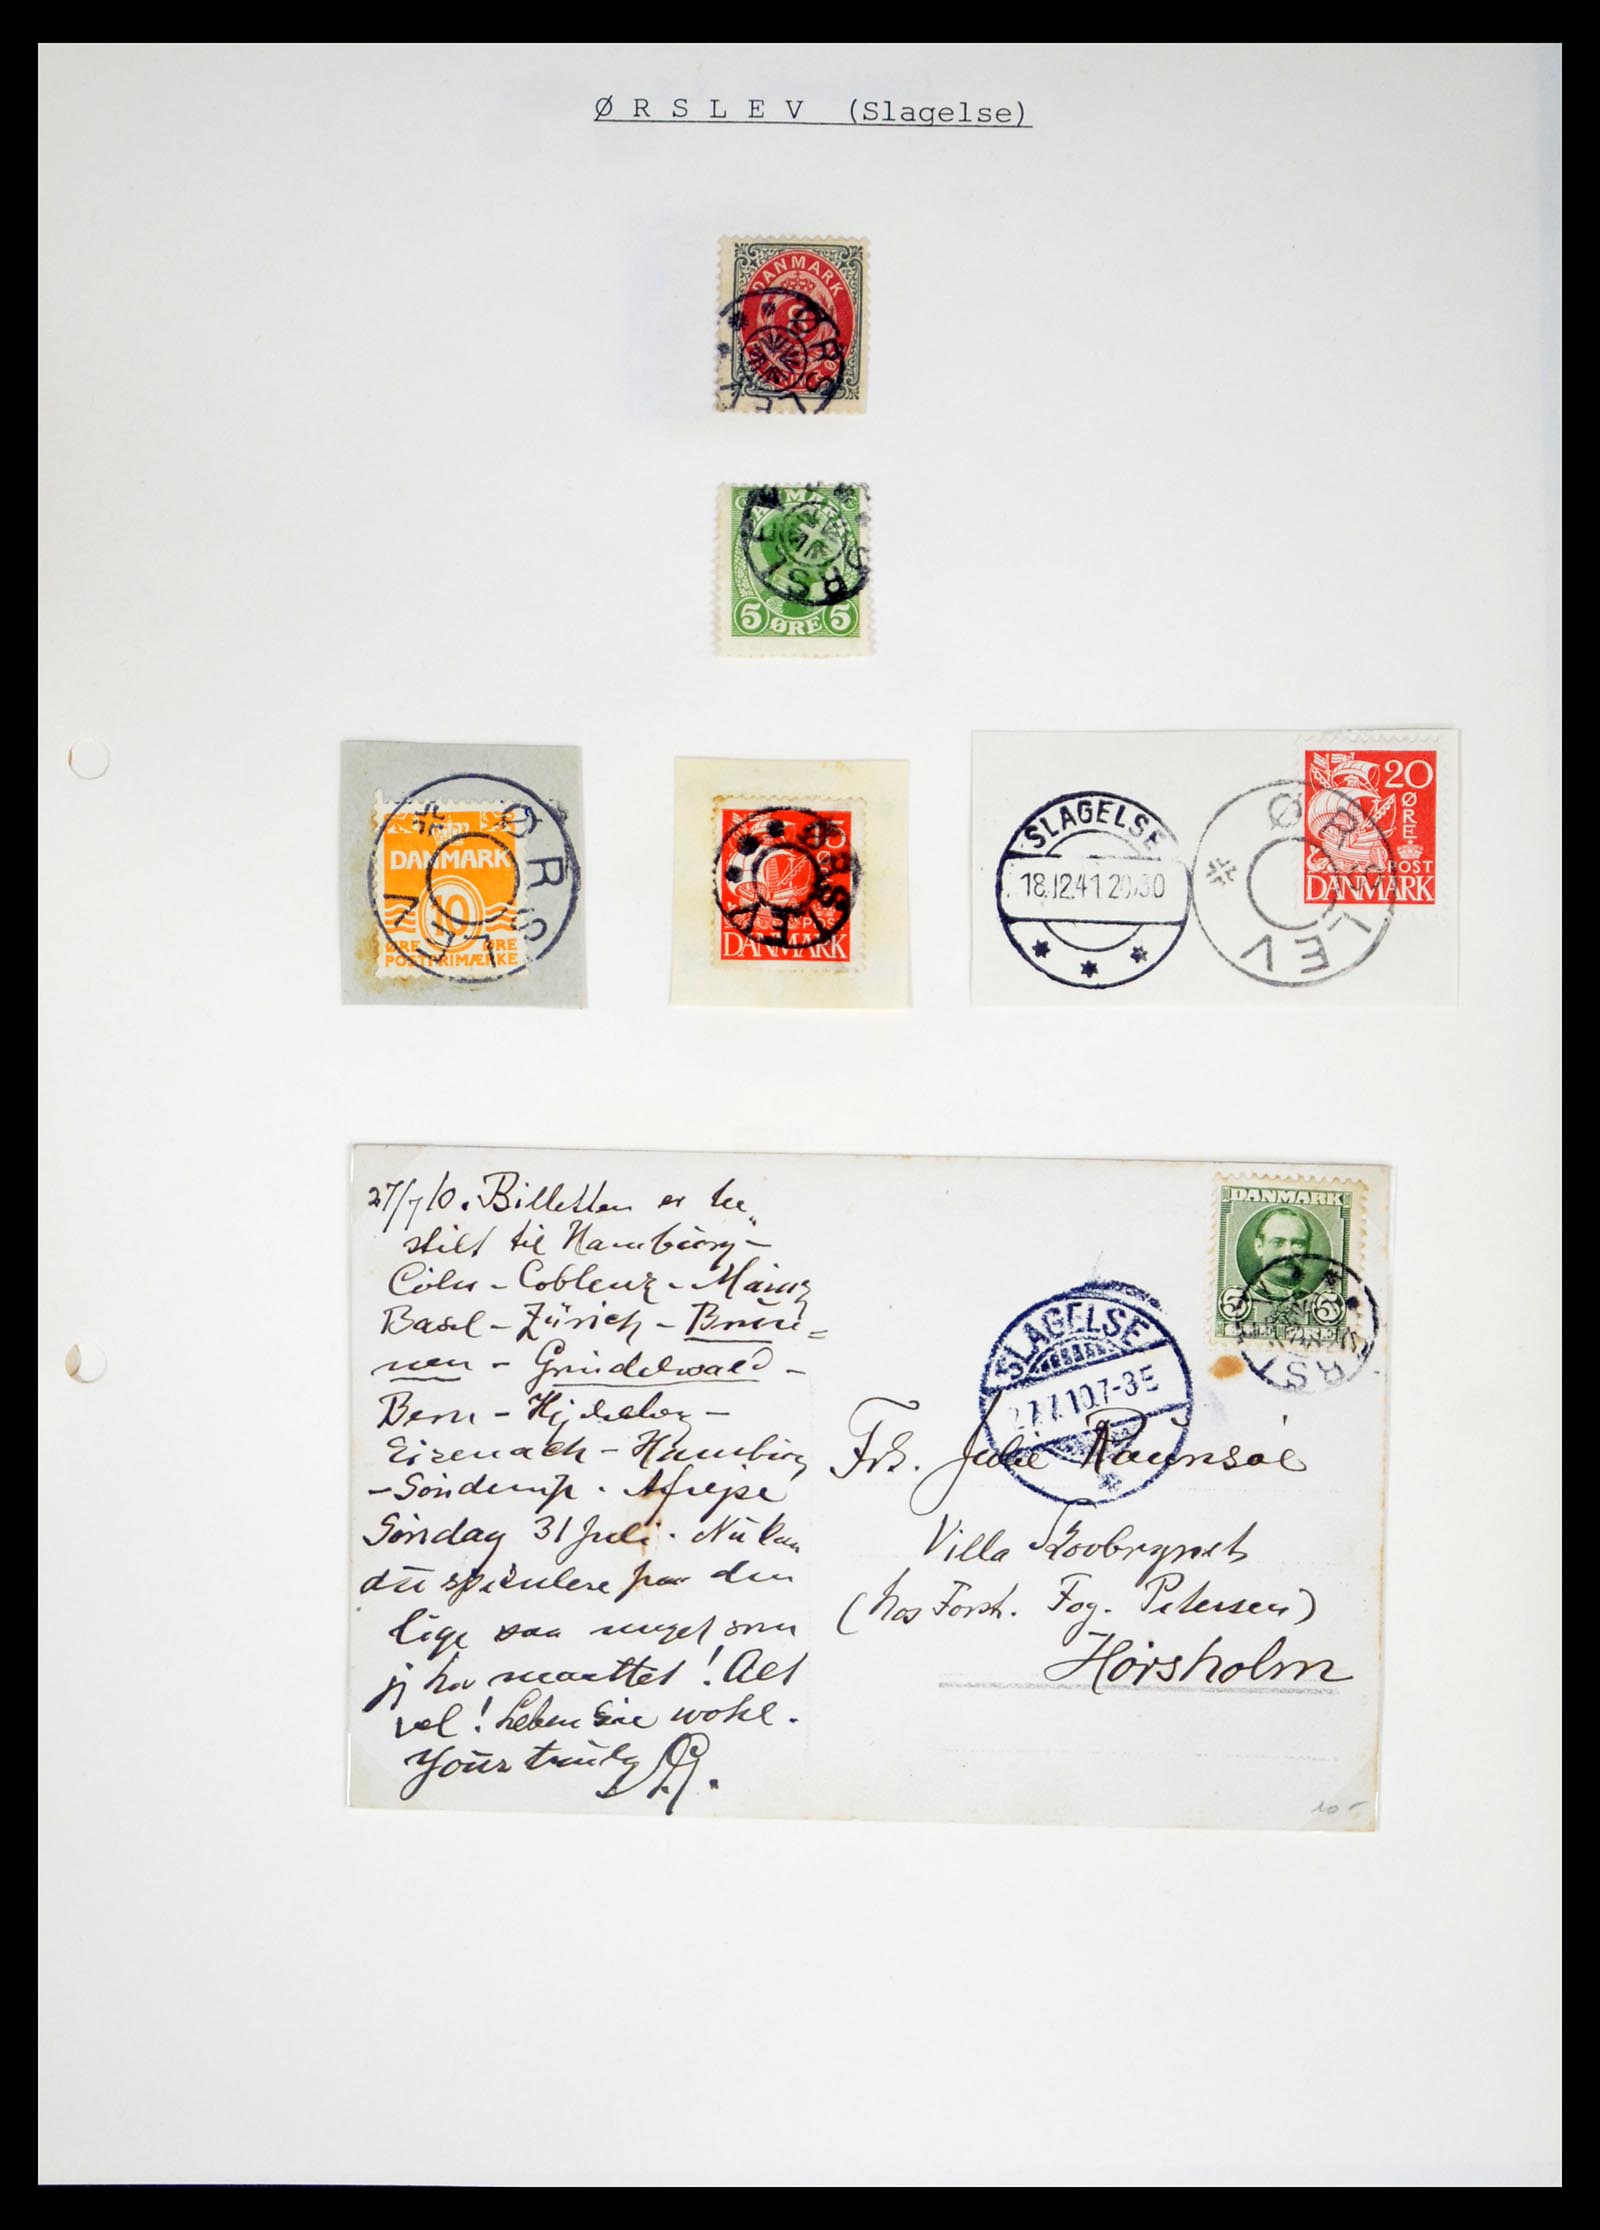 ØRSLEV (Slagelse)
DANMARK
ØRSLEV
ØRSLE
5 ØRE 5
ØRSLEV
DANMARK
10
ØRE ØRE
POSTFRIMÆRKE
15
ØRSLEV
POST
DANMARK
SLAGELSE
18.12.41.20.30
ØRSLEV
20
ØRE
POST
DANMARK
27/7 10. Billetten er be„
stilt til Hamburg –
Cöln – Coblenz – Mainz
Basel – Zürich – Brun=
nen – Grindelwald –
Bern – Heidelberg –
Eisenach – Hamburg
– Sönderup. Afrejse
Søndag 31 Juli. Nu kan
du spekulere paa den
lige saa meget som
jeg har maattet! Alt
vel! Leben Sie wohl.
Yours truly
DANMARK
5 5
ØRSL
SLAGELSE
27.7.10.7-8E
Frk. Julie Raunsøe
Villa Skovbrynet
(hos Forst. Fog. Petersen)
Hørsholm
10-